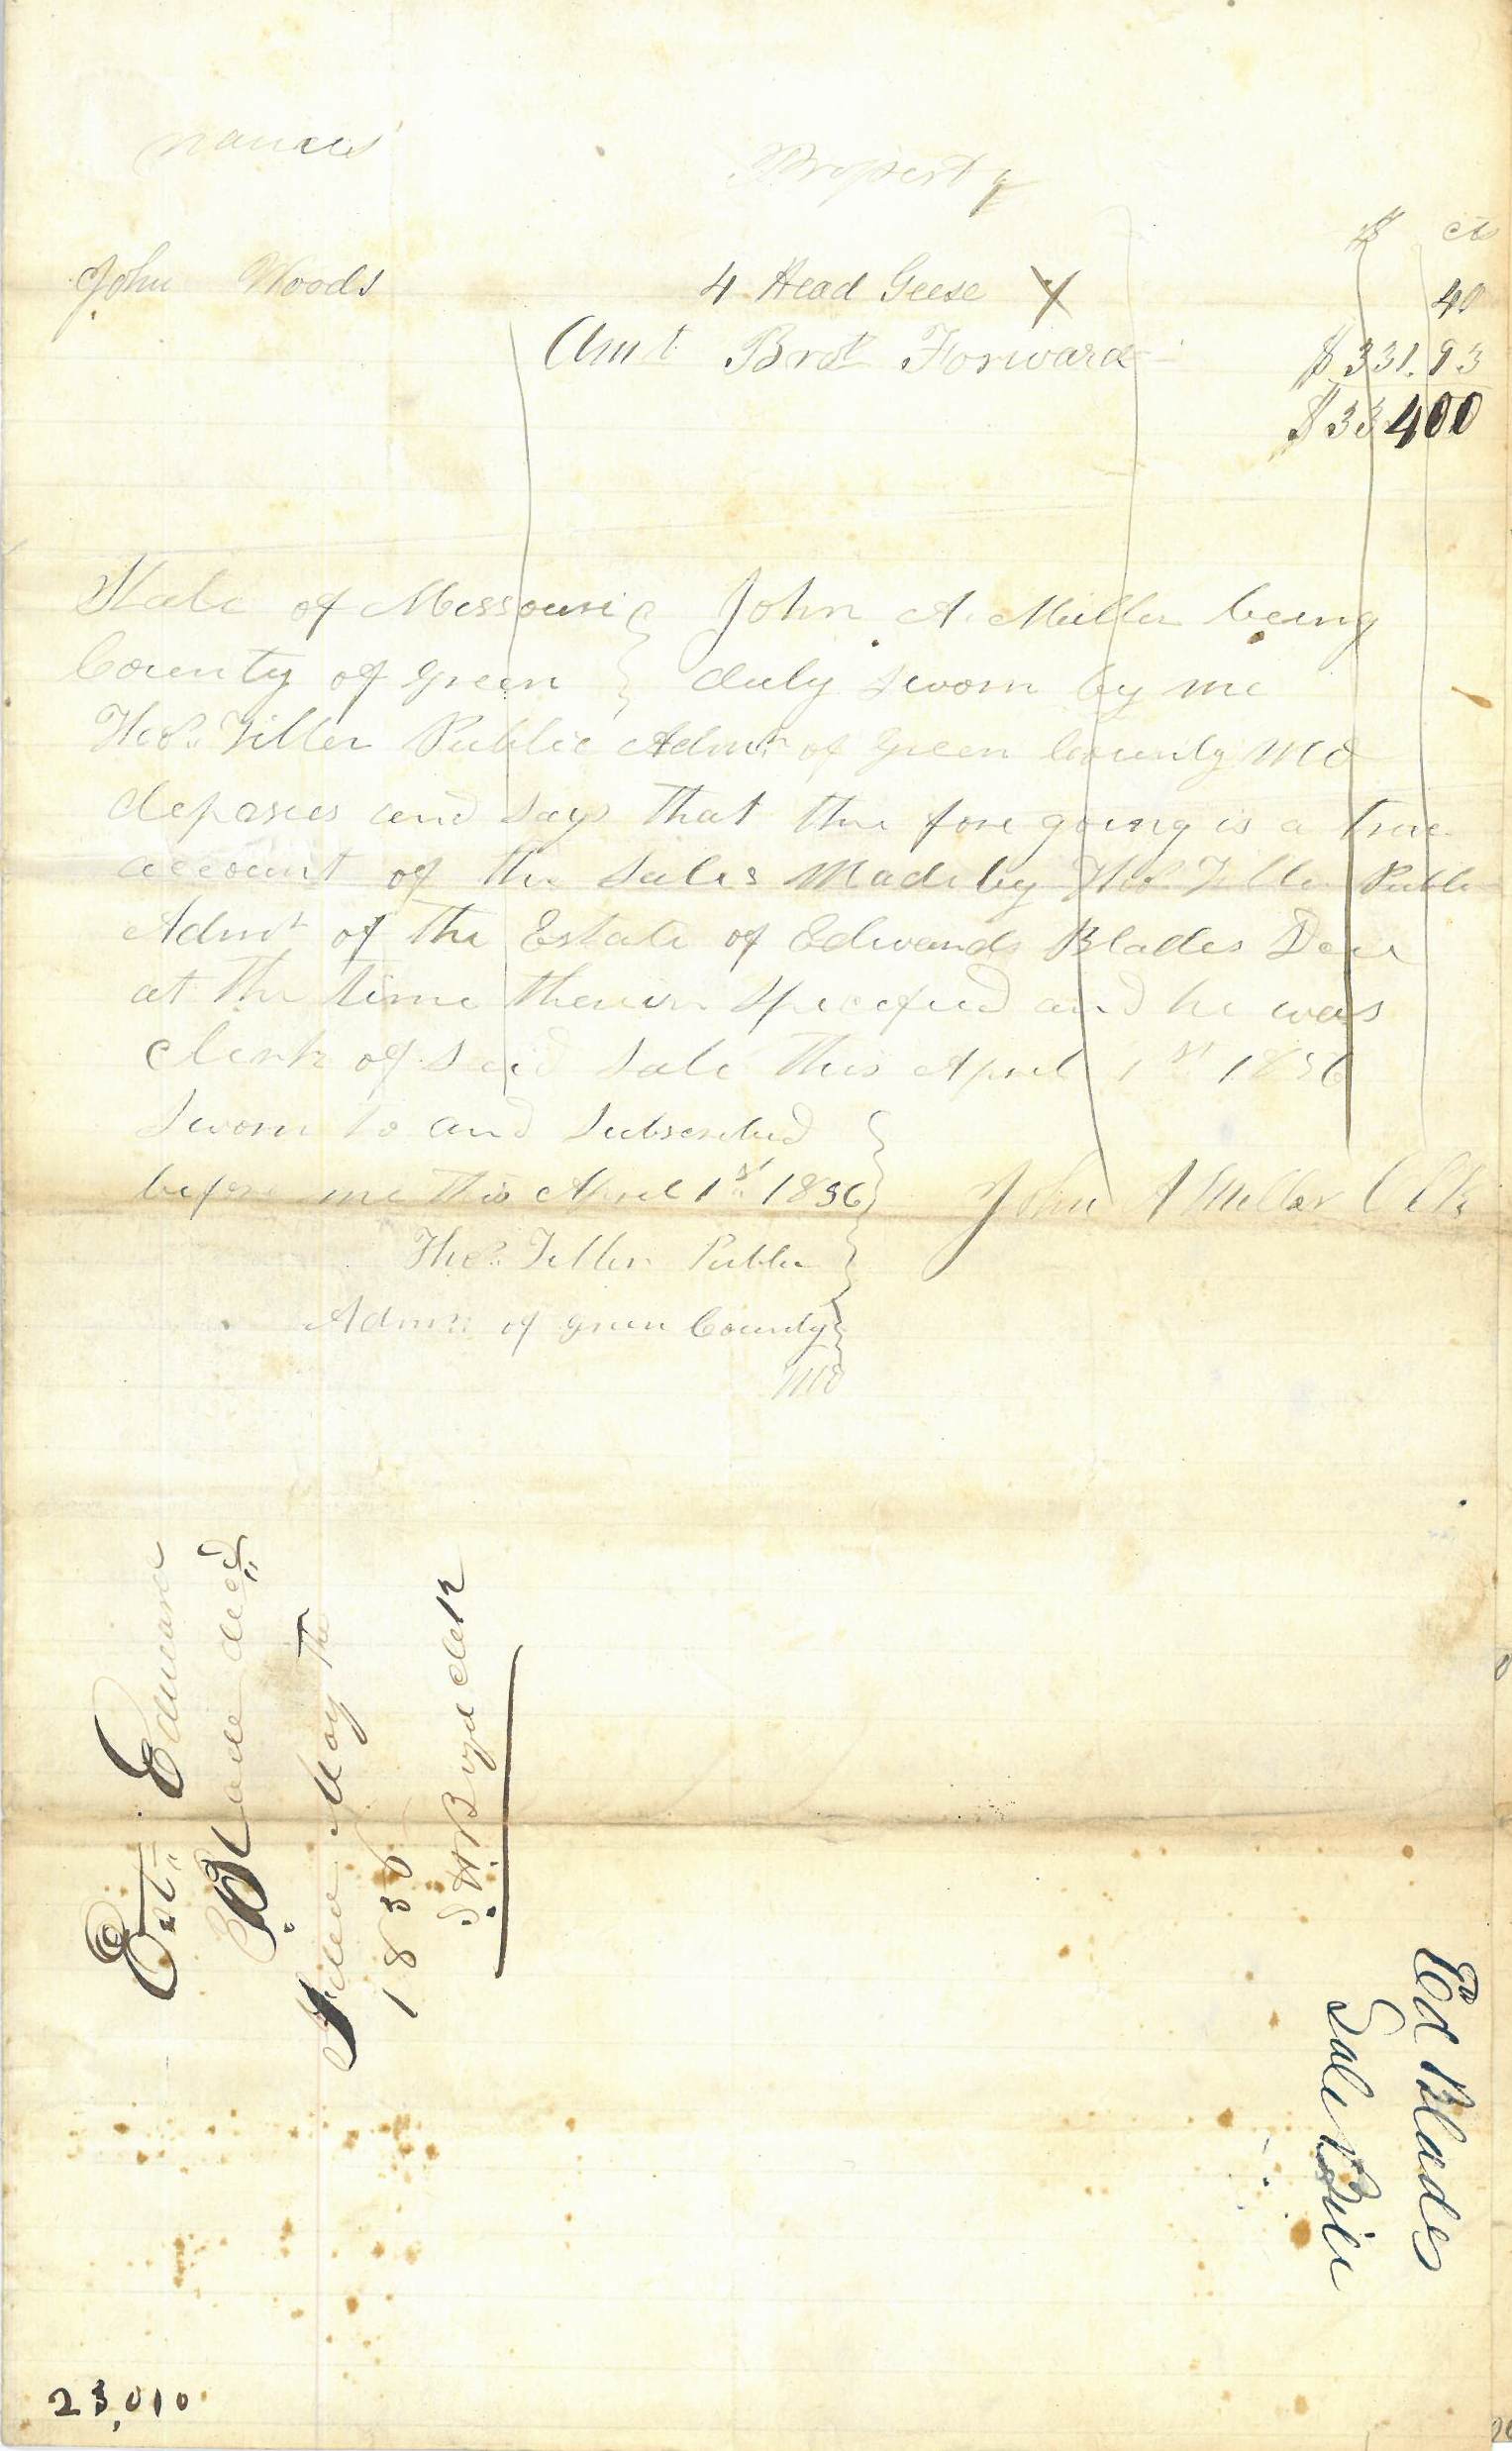 names Property
$ cts
John Woods 4 Head Geese X 40
Amt Brot Forward $ 331.93
$ 33400
State of Missouri } John A. Miller being
County of Green } duly sworn by me
Thos. Tiller Public Admr. of Green County Mo
deposes and says that the fore going is a true
account of the sales made by Thos Tiller Public
Admr of the Estate of Edwards Blades Decd
at the time therein specified and he was
clerk of said sale this April 1st 1856
Sworn to and subscribed
before me this April 1st 1856 } John A Miller Clk
Thos. Tiller Public
Admr. of Green County
Mo
Est. Edward
Blade decd
Filed May The
1856
J. H. Boyd clerk
Ed Blades
Sale Bill
23,010